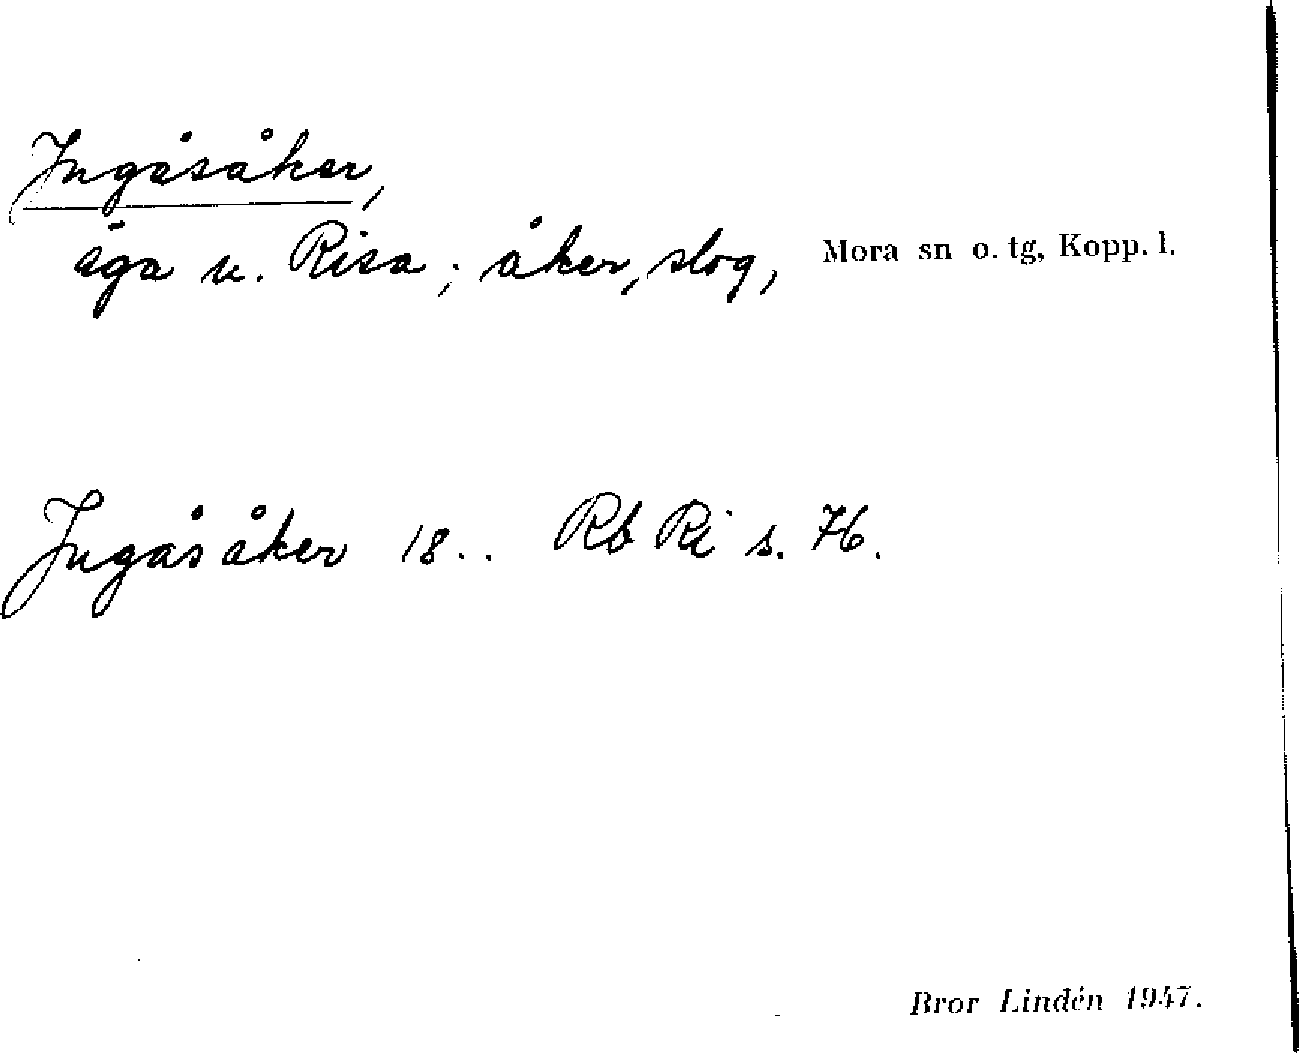 Ingåsåker,
äga u. Risa; åker, slog, Mora sn o. tg, Kopp. l.
Ingåsåker 18.. Rb Ri s. 76.
Bror Lindén 1947.